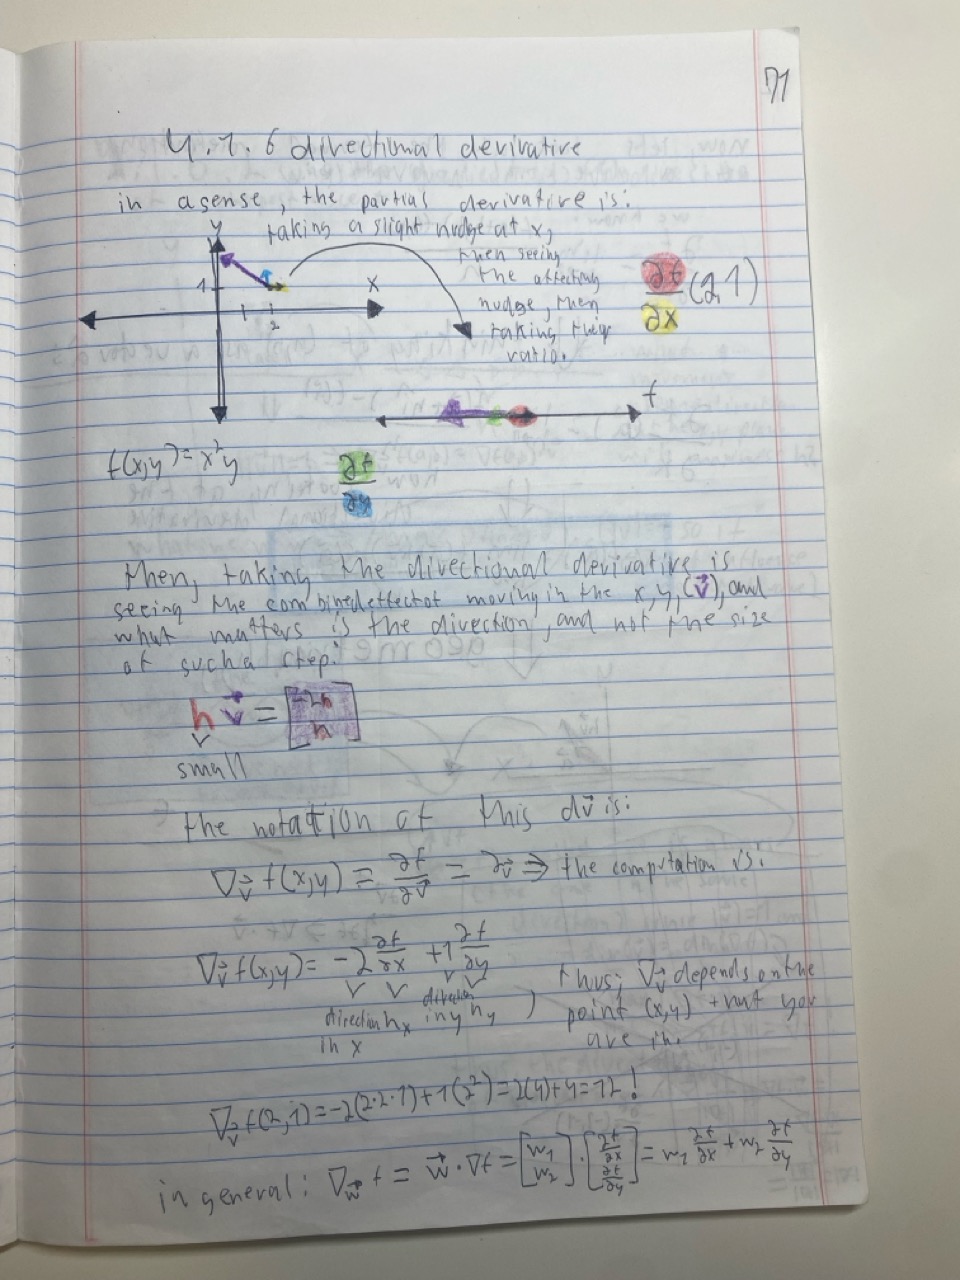 71
4.1.6 directional derivative
in a sense, the partial derivative is:
taking a slight nudge at x,
then seeing
the affecting
nudge, then
taking their
ratio.
y
x
1
1
2
∂f/∂x (2,1)
f
f(x,y)=x²y
∂f/∂y
then, taking the directional derivative is
seeing the combined effect of moving in the x,y,(v⃗), and
what matters is the direction, and not the size
of such a step:
h v⃗ = [-2h h]
small
the notation of this dv⃗ is:
∇v⃗ f(x,y) = ∂f/∂v⃗ = ∂v⃗ ⇒ the computation is:
∇v⃗ f(x,y) = -2 ∂f/∂x + 1 ∂f/∂y
direction in x hx direction in y hy
thus; ∇v⃗ depends on the
point (x,y) that you
are in.
∇v⃗ f(2,1)=-2(2·2·1)+1(2²)=2(4)+4=12!
in general: ∇w⃗ f = w⃗ · ∇f = [w1 w2] · [∂f/∂x ∂f/∂y] = w1 ∂f/∂x + w2 ∂f/∂y